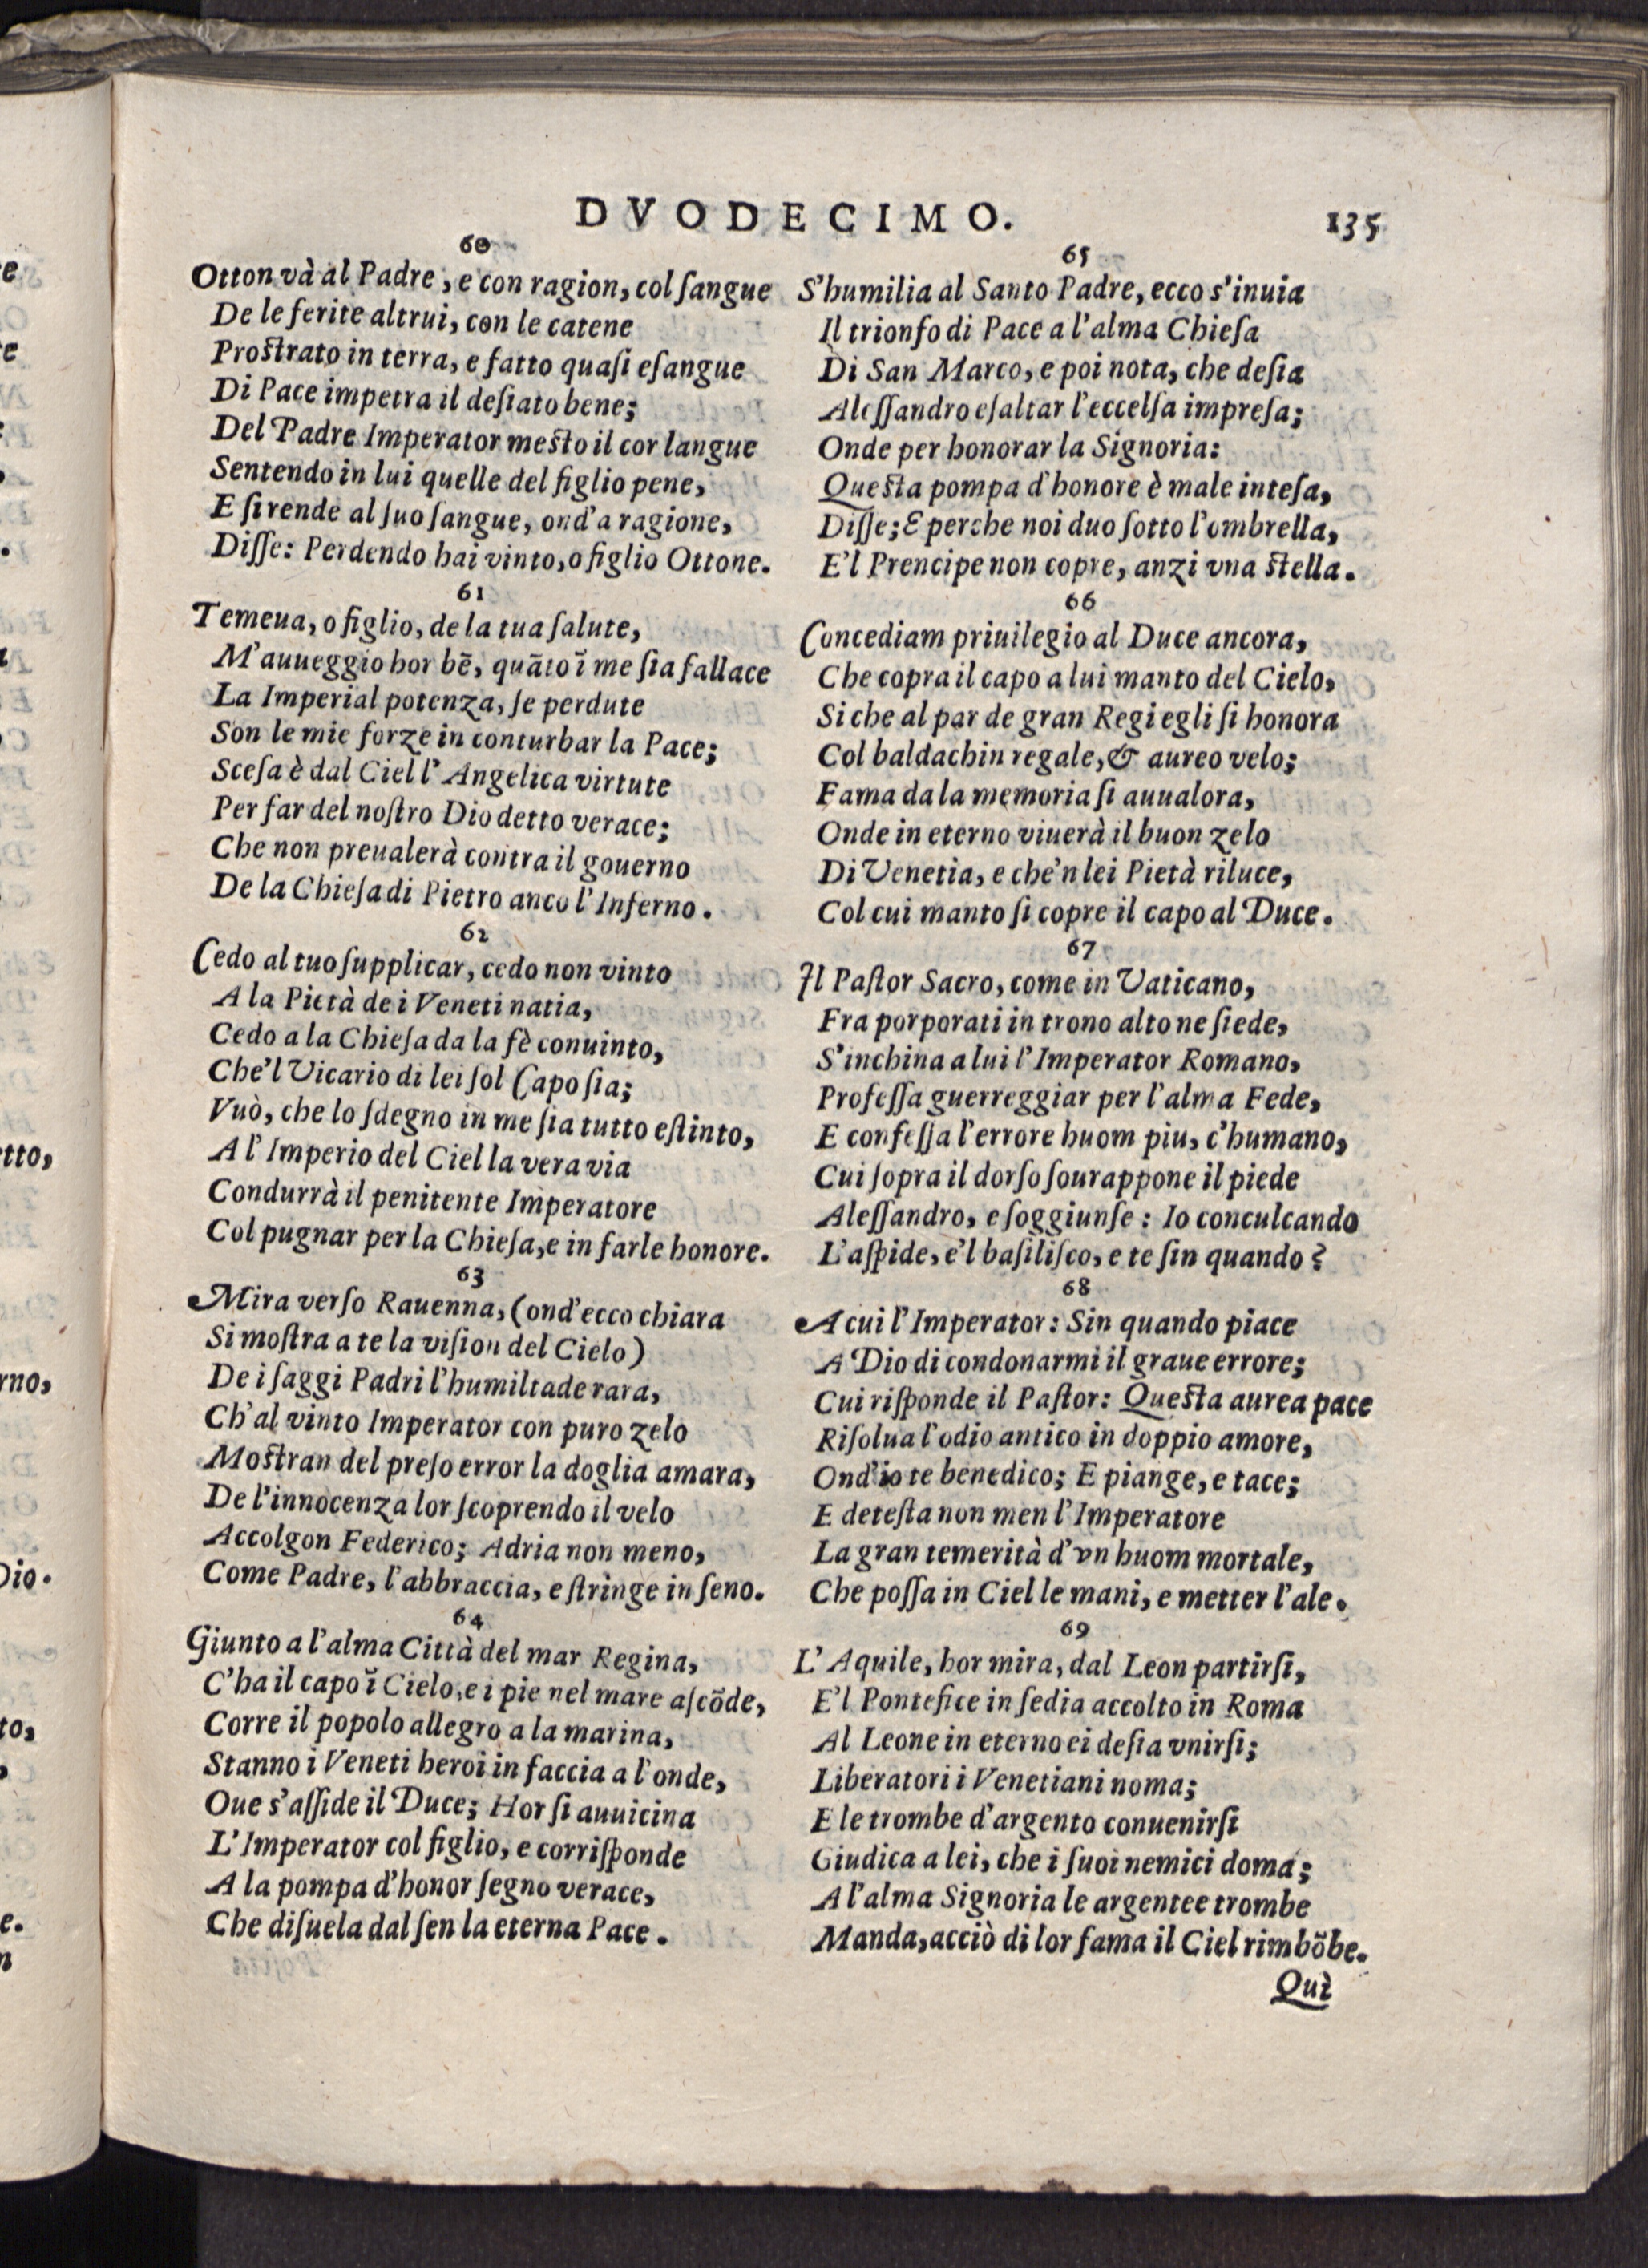 DVODECIMO.
135
60
Otton và al Padre, e con ragion, col ſangue
De le ferite altrui, con le catene
Prostrato in terra, e fatto quaſi eſangue
Di Pace impetra il deſiato bene;
Del Padre Imperator mesto il cor langue
Sentendo in lui quelle del figlio pene,
E ſi rende al ſuo ſangue, ond'a ragione,
Diſſe: Perdendo hai vinto, o figlio Ottone.
61
Temeua, o figlio, de la tua ſalute,
M'auueggio hor bē, quāto ī me ſia fallace
La Imperial potenza, ſe perdute
Son le mie forze in conturbar la Pace;
Sceſa è dal Ciel l'Angelica virtute
Per far del noſtro Dio detto verace;
Che non preualerà contra il gouerno
De la Chieſa di Pietro anco l'Inferno.
62
Cedo al tuo ſupplicar, cedo non vinto
A la Pietà de i Veneti natia,
Cedo a la Chieſa da la fè conuinto,
Che'l Vicario di lei ſol Capo ſia;
Vuò, che lo ſdegno in me ſia tutto eſtinto,
A l'Imperio del Ciel la vera via
Condurrà il penitente Imperatore
Col pugnar per la Chieſa, e in farle honore.
63
Mira verſo Rauenna, (ond'ecco chiara
Si moſtra a te la viſion del Cielo)
De i ſaggi Padri l'humiltade rara,
Ch'al vinto Imperator con puro zelo
Mostran del preſo error la doglia amara,
De l'innocenza lor ſcoprendo il velo
Accolgon Federico; Adria non meno,
Come Padre, l'abbraccia, e ſtringe in ſeno.
64
Giunto a l'alma Città del mar Regina,
C'ha il capo ī Cielo, e i pie nel mare aſcōde,
Corre il popolo allegro a la marina,
Stanno i Veneti heroi in faccia a l'onde,
Oue s'aſſide il Duce; Hor ſi auuicina
L'Imperator col figlio, e corriſponde
A la pompa d'honor ſegno verace,
Che diſuela dal ſen la eterna Pace.
65
S'humilia al Santo Padre, ecco s'inuia
Il trionfo di Pace a l'alma Chieſa
Di San Marco, e poi nota, che deſia
Aleſſandro eſaltar l'eccelſa impreſa;
Onde per honorar la Signoria:
Questa pompa d'honore è male inteſa,
Diſſe; E perche noi duo ſotto l'ombrella,
E'l Prencipe non copre, anzi vna stella.
66
Concediam priuilegio al Duce ancora,
Che copra il capo a lui manto del Cielo,
Si che al par de gran Regi egli ſi honora
Col baldachin regale, & aureo velo;
Fama da la memoria ſi auualora,
Onde in eterno viuerà il buon zelo
Di Venetia, e che'n lei Pietà riluce,
Col cui manto ſi copre il capo al Duce.
67
Il Paſtor Sacro, come in Vaticano,
Fra porporati in trono alto ne ſiede,
S'inchina a lui l'Imperator Romano,
Profeſſa guerreggiar per l'alma Fede,
E confeſſa l'errore huom piu, c'humano,
Cui ſopra il dorſo ſourappone il piede
Aleſſandro, e ſoggiunſe: Io conculcando
L'aſpide, e'l baſiliſco, e te ſin quando?
68
A cui l'Imperator: Sin quando piace
A Dio di condonarmi il graue errore;
Cui riſponde il Paſtor: Questa aurea pace
Riſolua l'odio antico in doppio amore,
Ond'io te benedico; E piange, e tace;
E deteſta non men l'Imperatore
La gran temerità d'vn huom mortale,
Che poſſa in Ciel le mani, e metter l'ale.
69
L'Aquile, hor mira, dal Leon partirſi,
E'l Pontefice in ſedia accolto in Roma
Al Leone in eterno ei deſia vnirſi;
Liberatori i Venetiani noma;
E le trombe d'argento conuenirſi
Giudica a lei, che i ſuoi nemici doma;
A l'alma Signoria le argentee trombe
Manda, acciò di lor fama il Ciel rimbōbe.
Quì